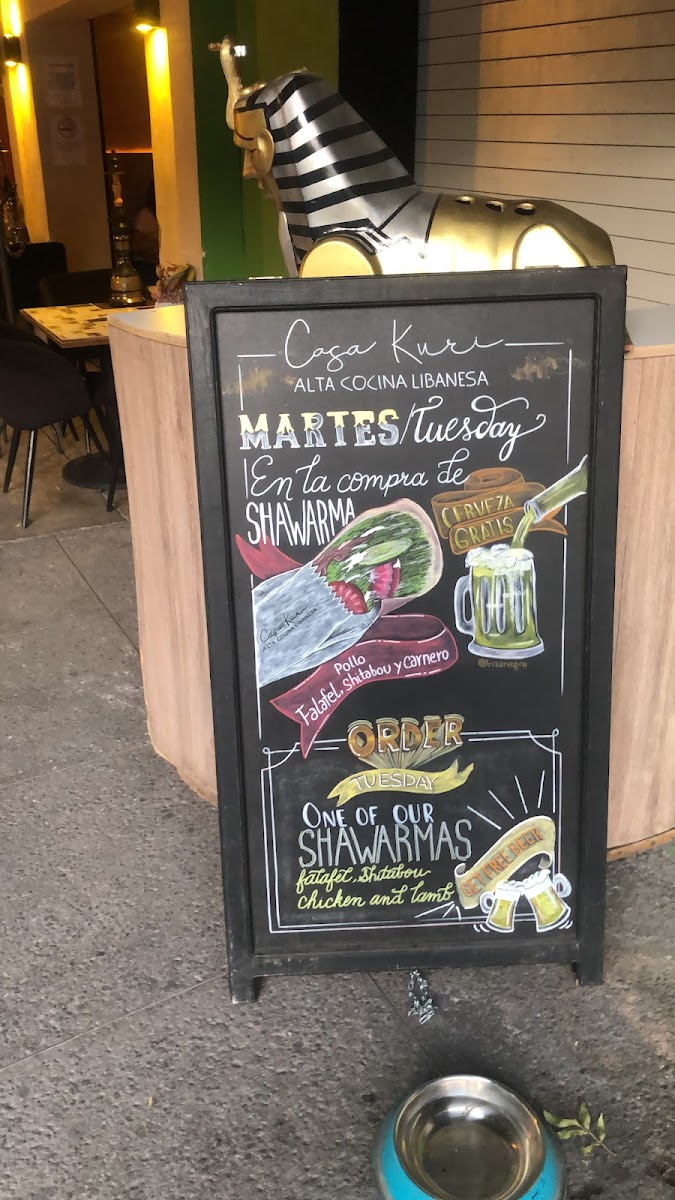 Casa Kuri
ALTA COCINA LIBANESA
MARTES/Tuesday
En la compra de
SHAWARMA
CERVEZA
GRATIS
Casa Kuri
ALTA COCINA LIBANESA
Pollo
Falafel, Shitabou y Carnero
ORDER
TUESDAY
ONE OF OUR
SHAWARMAS
falafel, Shitabou
chicken and lamb
GET FREE BEER